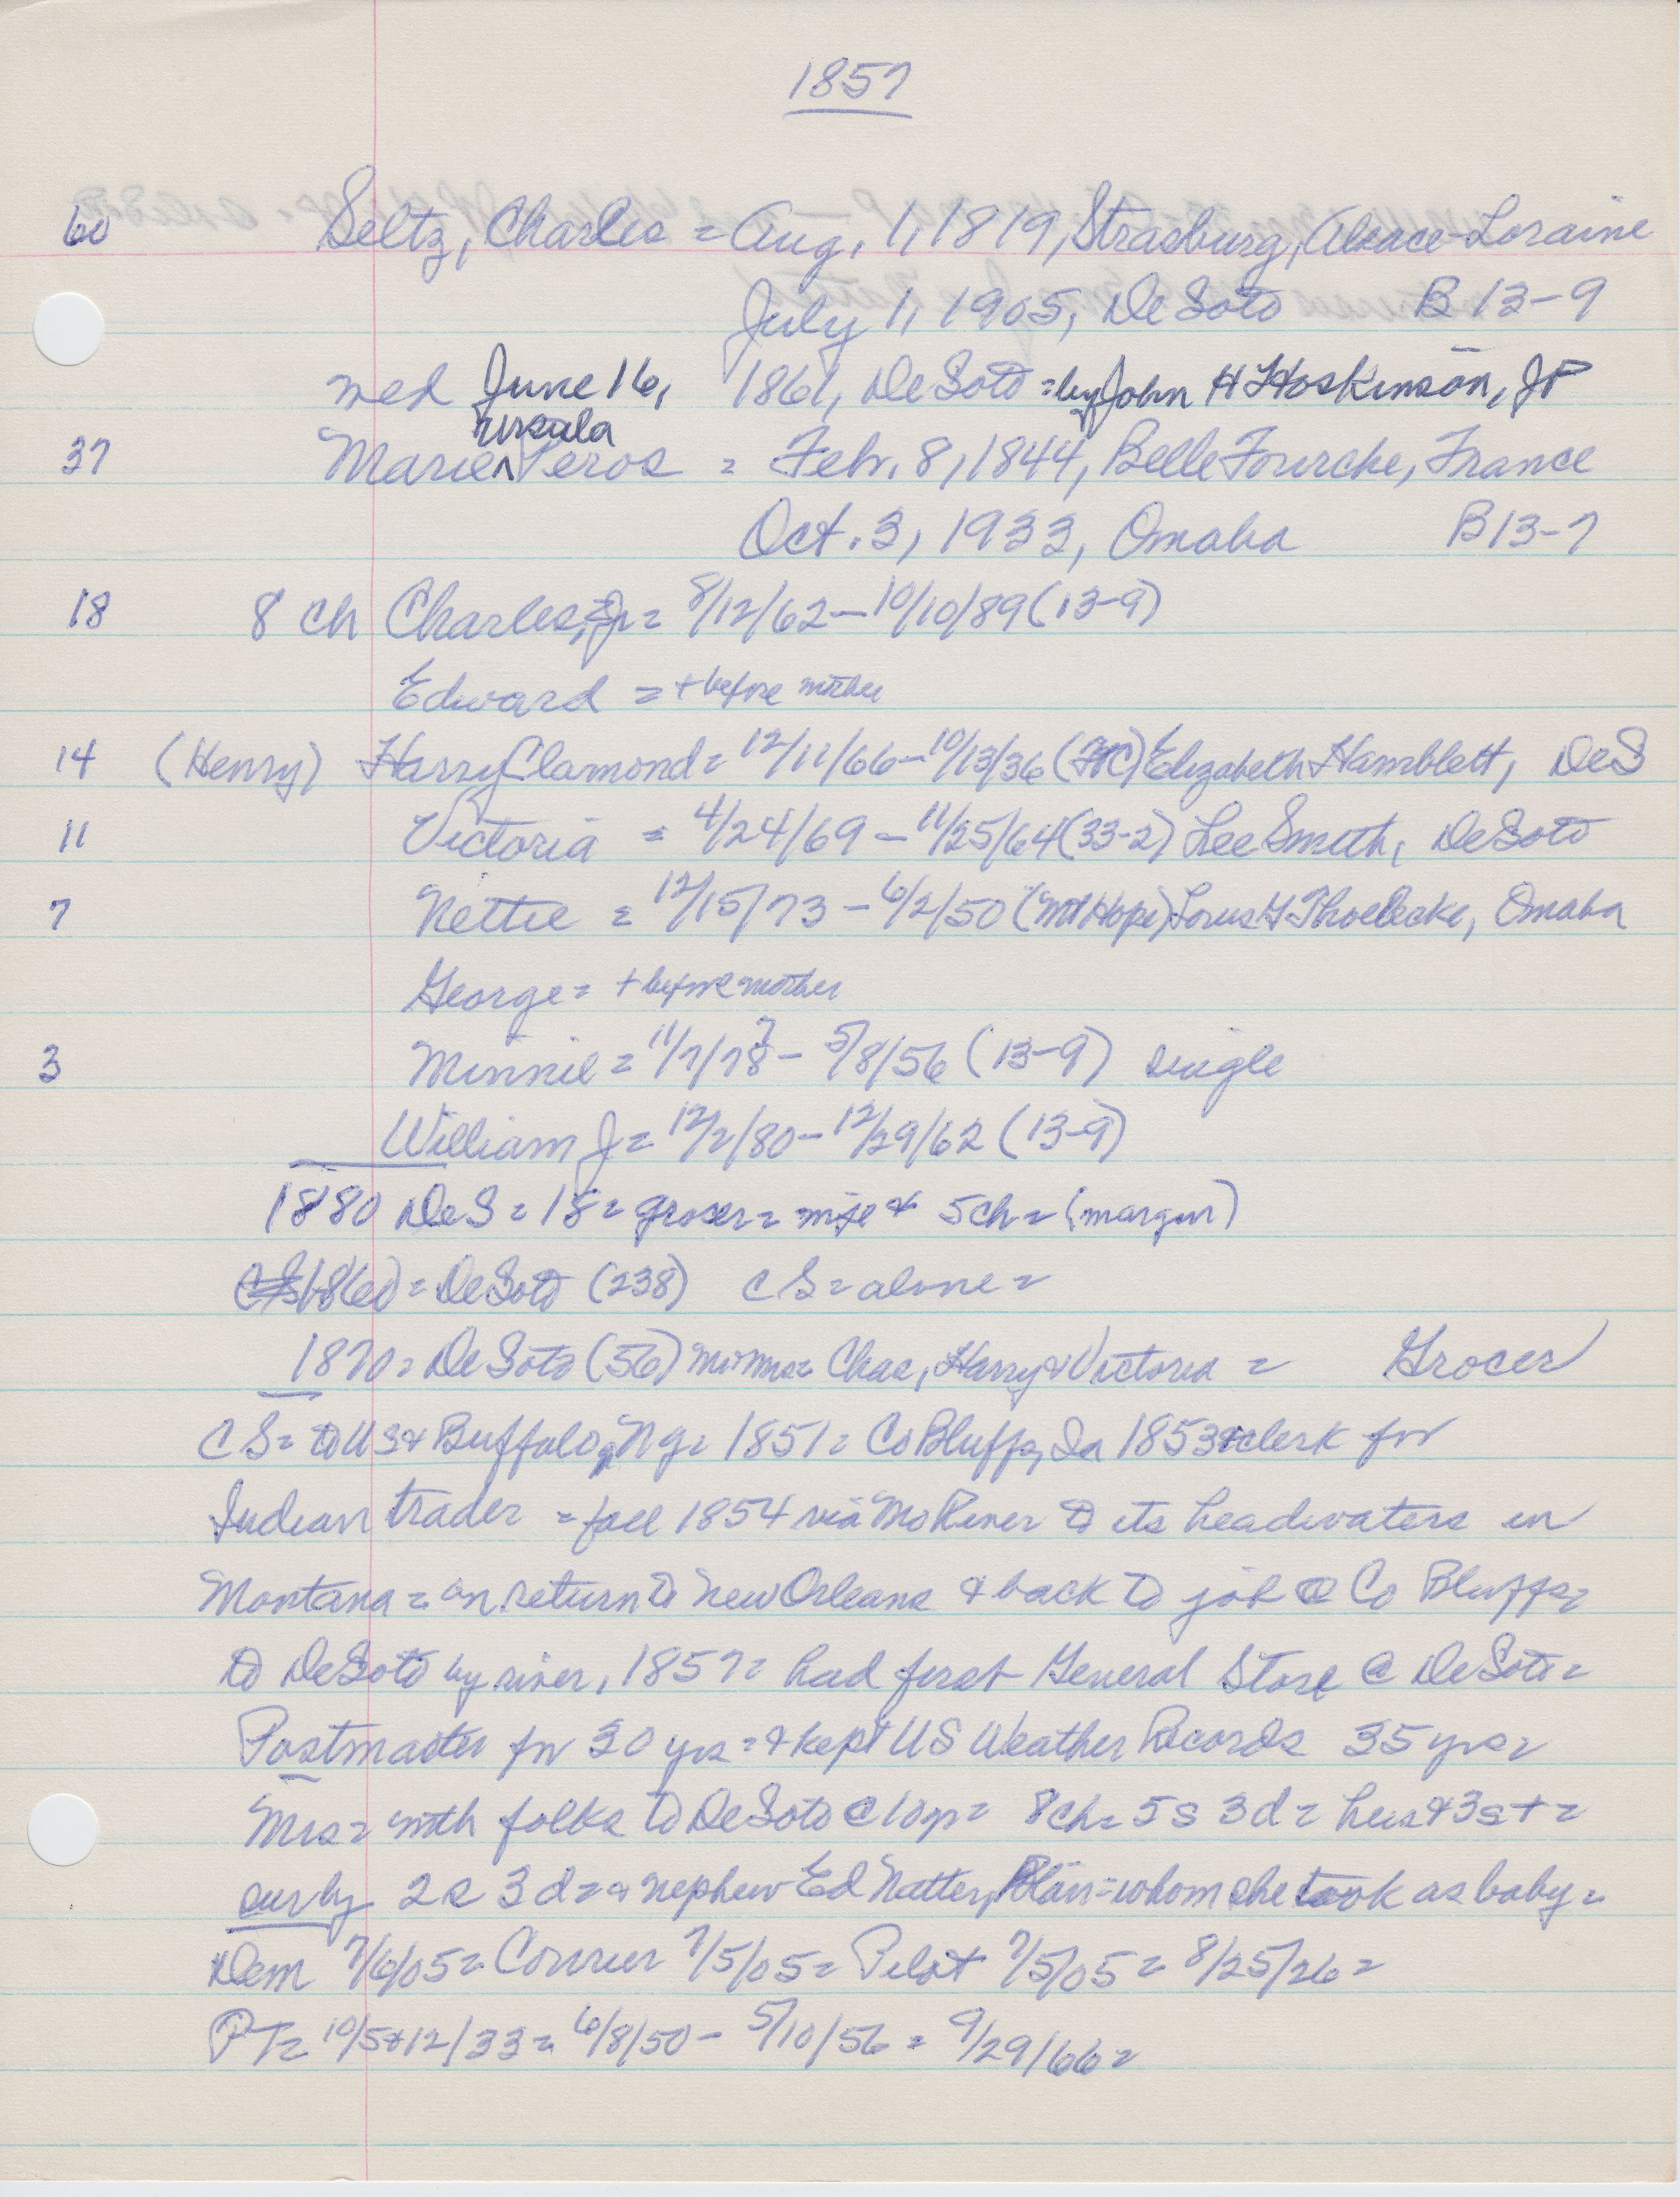 1857
60 Seltz, Charles = Aug. 1, 1819, Strasburg, Alsace-Loraine
July 1, 1905, DeSoto B 13-9
med June 16, 1861, DeSoto = by John H Hoskinson, JP
Ursula
37 Marie ^ Peros = Feb. 8, 1844, Belle Fourche, France
Oct. 3, 1933, Omaha B13-7
18 8 ch Charles, Jr = 8/12/62 - 10/10/89 (13-9)
Edward = + before mother
14 (Henry) Harry Clamond = 12/11/66 - 10/13/36 (FtC) Elizabeth Hamblett, DeS
11 Victoria = 4/24/69 - 11/25/64 (33-2) Lee Smith, DeSoto
7 Nettie = 12/15/73 - 6/2/50 (Mt Hope) Louis H Thoelecke, Omaha
George = + before mother
7
3 Minnie = 11/7/78 - 5/8/56 (13-9) single
William J = 12/2/80 - 12/29/62 (13-9)
1880 DeS = 18 = grocer = wife & 5ch = (margin)
1860 = DeSoto (238) CS = alone =
1870 = DeSoto (56) Chas, Harry & Victoria = Grocer
CS = to US & Buffalo, Ny = 1851 = Co Bluffs, Ia 1853 & clerk for
Indian trader = fall 1854 via Mo River to its headwaters in
Montana = on return to New Orleans & back to job @ Co Bluffs =
to DeSoto by river, 1857 = had first General Store @ DeSoto =
Postmaster for 30 yrs = & kept US Weather Records 35 yrs =
Mrs = with folks to DeSoto @ 10yr = 8ch = 5s 3d = hus & 3s + =
sur by 2s 3d = & nephew Ed Natter, Blair = whom she took as baby =
Dem 7/6/05 = Courier 7/5/05 = Pilot 7/5/05 = 8/25/26 =
PT = 10/5&12/33 = 6/8/50 - 5/10/56 = 9/29/66 =